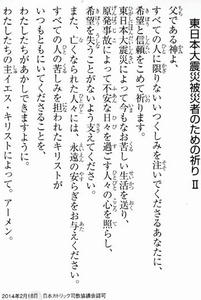 東日本大震災被災者のための祈り Ⅱ
父である神よ、
すべてのものに限りないいつくしみを注いでくださるあなたに、
希望と信頼をこめて祈ります。
東日本大震災によって今もなお苦しい生活を送り、
原発事故によって不安な日々を過ごす人々の心を照らし、
希望を失うことがないよう支えてください。
また、亡くなられた人々には、永遠の安らぎをお与えください。
すべての人の苦しみを担われたキリストが
いつもともにいてくださることを、
わたしたちがあかしできますように。
わたしたちの主イエス・キリストによって。アーメン。
2014年2月18日 日本カトリック司教協議会認可